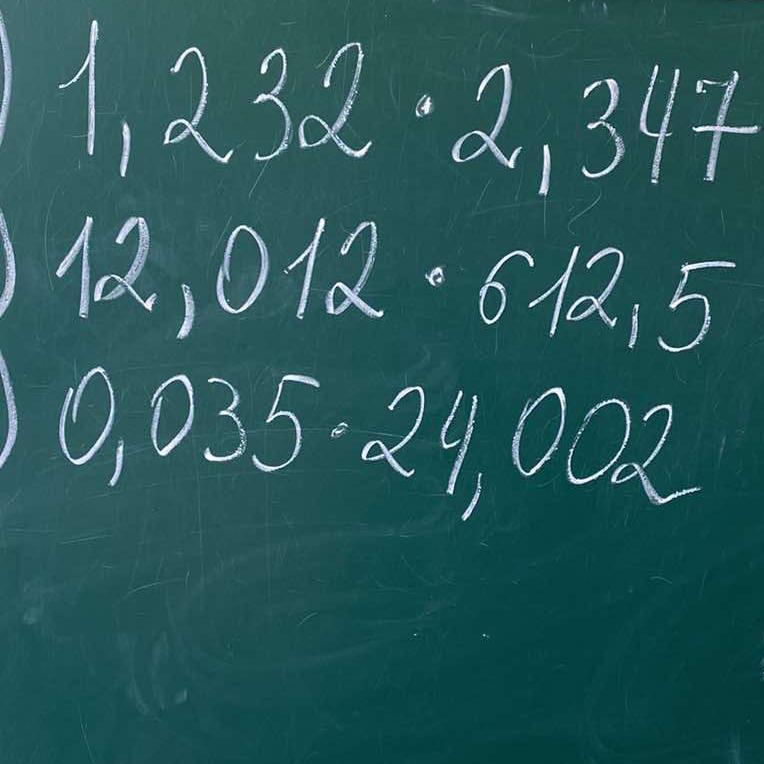 ) 1,232 · 2,347
) 12,012 · 612,5
) 0,035 · 24,002